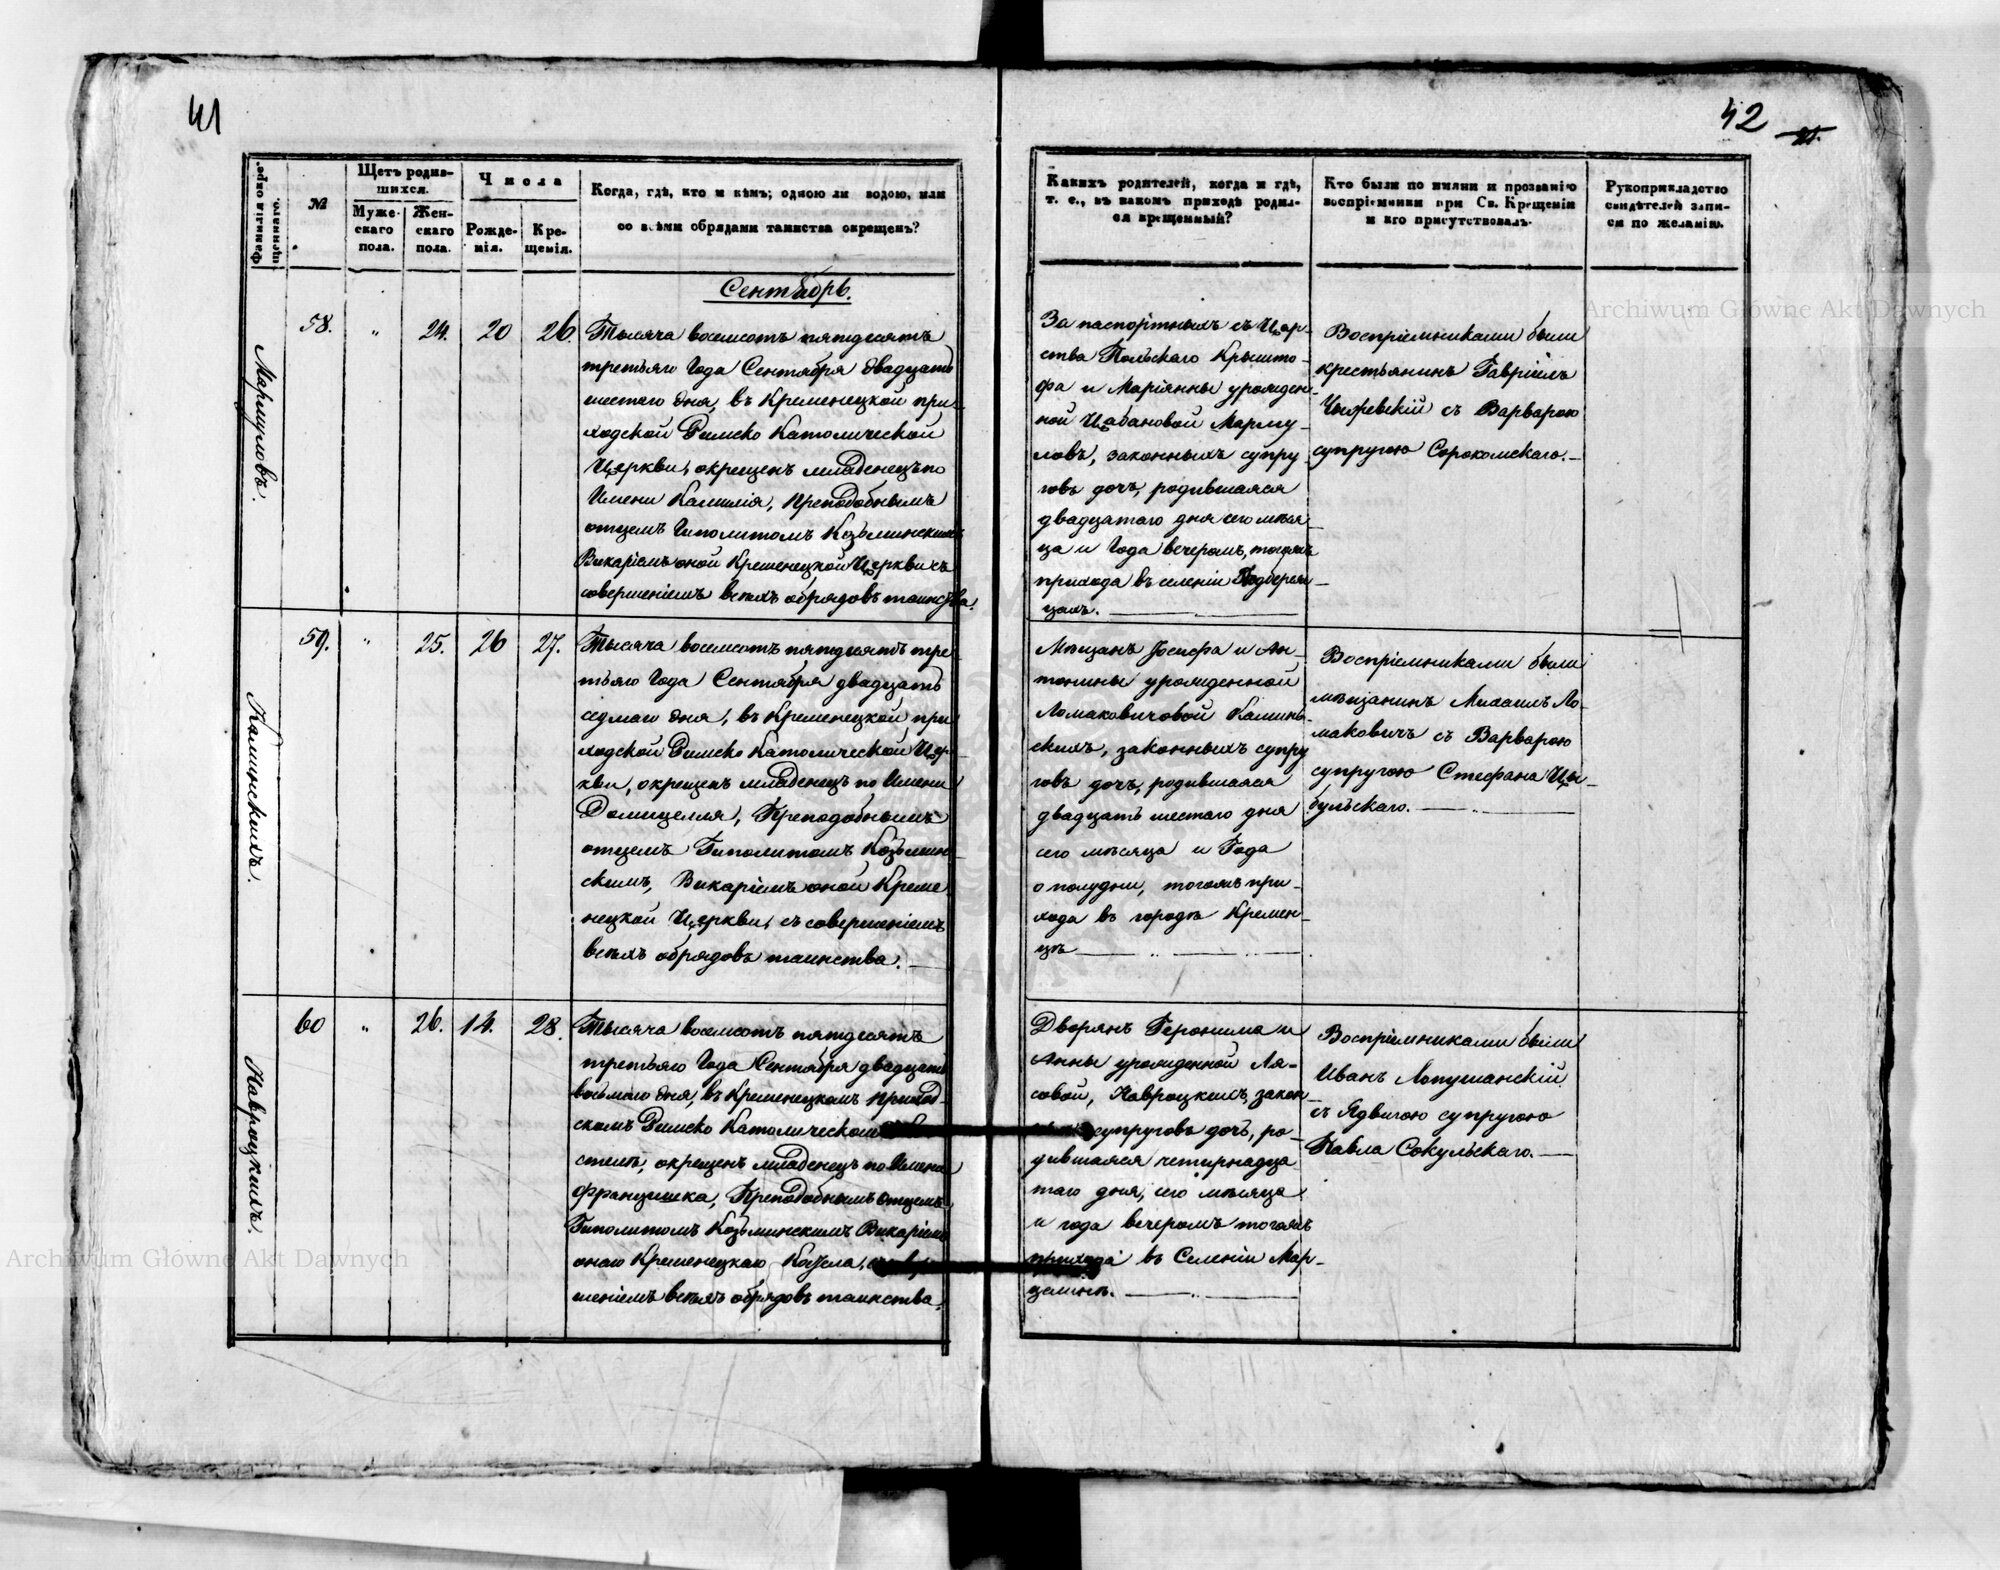 41
Фамилія новорожденнаго.
№
Щетъ родившихся.
Мужескаго пола.
Женскаго пола.
Числа
Рожденія.
Крещенія.
Когда, гдѣ, кто и кѣмъ; одною ли водою, или
со всѣми обрядами таинства окрещенъ?
Сентябрь.
Мармуловъ.
58. " 24. 20 26.
Тысяча восемсотъ пятдесятъ
третьяго Года Сентября двадцать
шестаго дня, въ Кременецкой при-
ходской Римско Католической
Церкви, окрещенъ младенецъ по
Имени Камилія, Преподобнымъ
отцемъ Гиполитомъ Козьминскимъ
Викаріемъ оной Кременецкой Церкви съ
совершеніемъ всѣхъ обрядовъ таинства.
Каминскихъ.
59. " 25. 26 27.
Тысяча восемсотъ пятдесятъ тре-
тьяго Года Сентября двадцать
седмаго дня, въ Кременецкой при
ходской Римско Католической Цер-
кви, окрещенъ младенецъ по Имени
Домицелля, Преподобнымъ
отцемъ Гиполитомъ Козьмин-
скимъ, Викаріемъ оной Креме-
нецкой Церкви, съ совершеніемъ
всѣхъ обрядовъ таинства.
Навроцкихъ.
60 " 26. 14. 28.
Тысяча восемсотъ пятдесятъ
третьяго Года Сентября двадцать
восьмаго дня, въ Кременецкомъ приход-
скомъ Римско Католическомъ
стелѣ, окрещенъ младенецъ по Имени
Францишка, Преподобнымъ отцемъ
Гиполитомъ Козьминскимъ Викаріемъ
онаго Кременецкаго Костела,
шеніемъ всѣхъ обрядовъ таинства.
42
Какихъ родителей, когда и гдѣ,
т. е., въ какомъ приходѣ родил-
ся крещенный?
Кто были по имяни и прозванію
воспріемники при Св. Крещеніи
и кто присутствовалъ.
Рукоприкладство
свидѣтелей запи-
си по желанію.
За паспортныхъ съ Цар-
ства Польскаго Крышто-
фа и Маріянны урожден-
ной Цабановой Марму-
ловъ, законныхъ супру-
говъ дочь, родившаяся
двадцатаго дня сего мѣся-
ца и Года вечеромъ, тогожъ
прихода въ селеніи Подберез-
цахъ.
Воспріемниками были
крестьянинъ Гавріилъ
Чыжевскій съ Варварою
супругою Сорокомскаго.
Мѣщанъ Іосифа и Ан-
тонины урожденной
Ломаковичовой Камин-
скихъ, законныхъ супру
говъ дочь, родившаяся
двадцать шестаго дня
сего мѣсяца и Года
о полудни, тогожъ при-
хода въ городѣ Кремен-
цѣ
Воспріемниками были
мѣщанинъ Михаилъ Ло-
маковичъ съ Варварою
супругою Стефана Цы-
бульскаго.
Дворянъ Геронима и
Анны урожденной Ля-
совой, Навроцкихъ, закон-
супруговъ дочь, ро-
дившаяся четырнадца
таго дня, сего мѣсяца
и года вечеромъ тогожъ
прихода въ Селеніи Мар-
целинѣ.
Воспріемниками были
Иванъ Лопушанскій
съ Ядвигою супругою
Павла Сокульскаго.
Archiwum Główne Akt Dawnych
Archiwum Główne Akt Dawnych